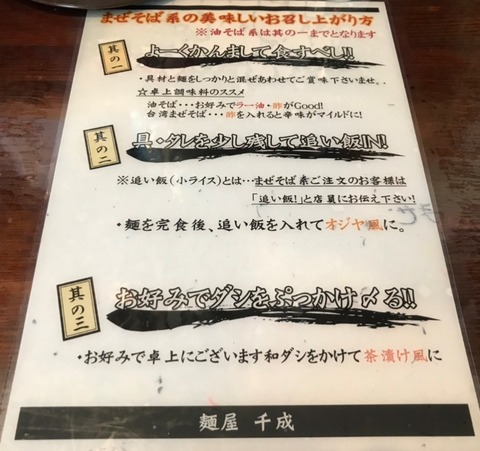 まぜそば系の美味しいお召し上がり方
※油そば系は其の一までとなります
其の一
よーくかんまして食すべし!!
・具材と麺をしっかりと混ぜあわせてご賞味下さいませ。
☆卓上調味料のススメ
油そば・・・お好みでラー油・酢がGood!
台湾まぜそば・・・酢を入れると辛味がマイルドに!
其の二
具・タレを少し残して追い飯IN!
※追い飯(小ライス)とは…まぜそば系ご注文のお客様は
「追い飯!」と店員にお伝え下さい!
・麺を完食後、追い飯を入れてオジヤ風に。
其の三
お好みでダシをぶっかけ〆る!!
・お好みで卓上にございます和ダシをかけて茶漬け風に
麺屋 千成